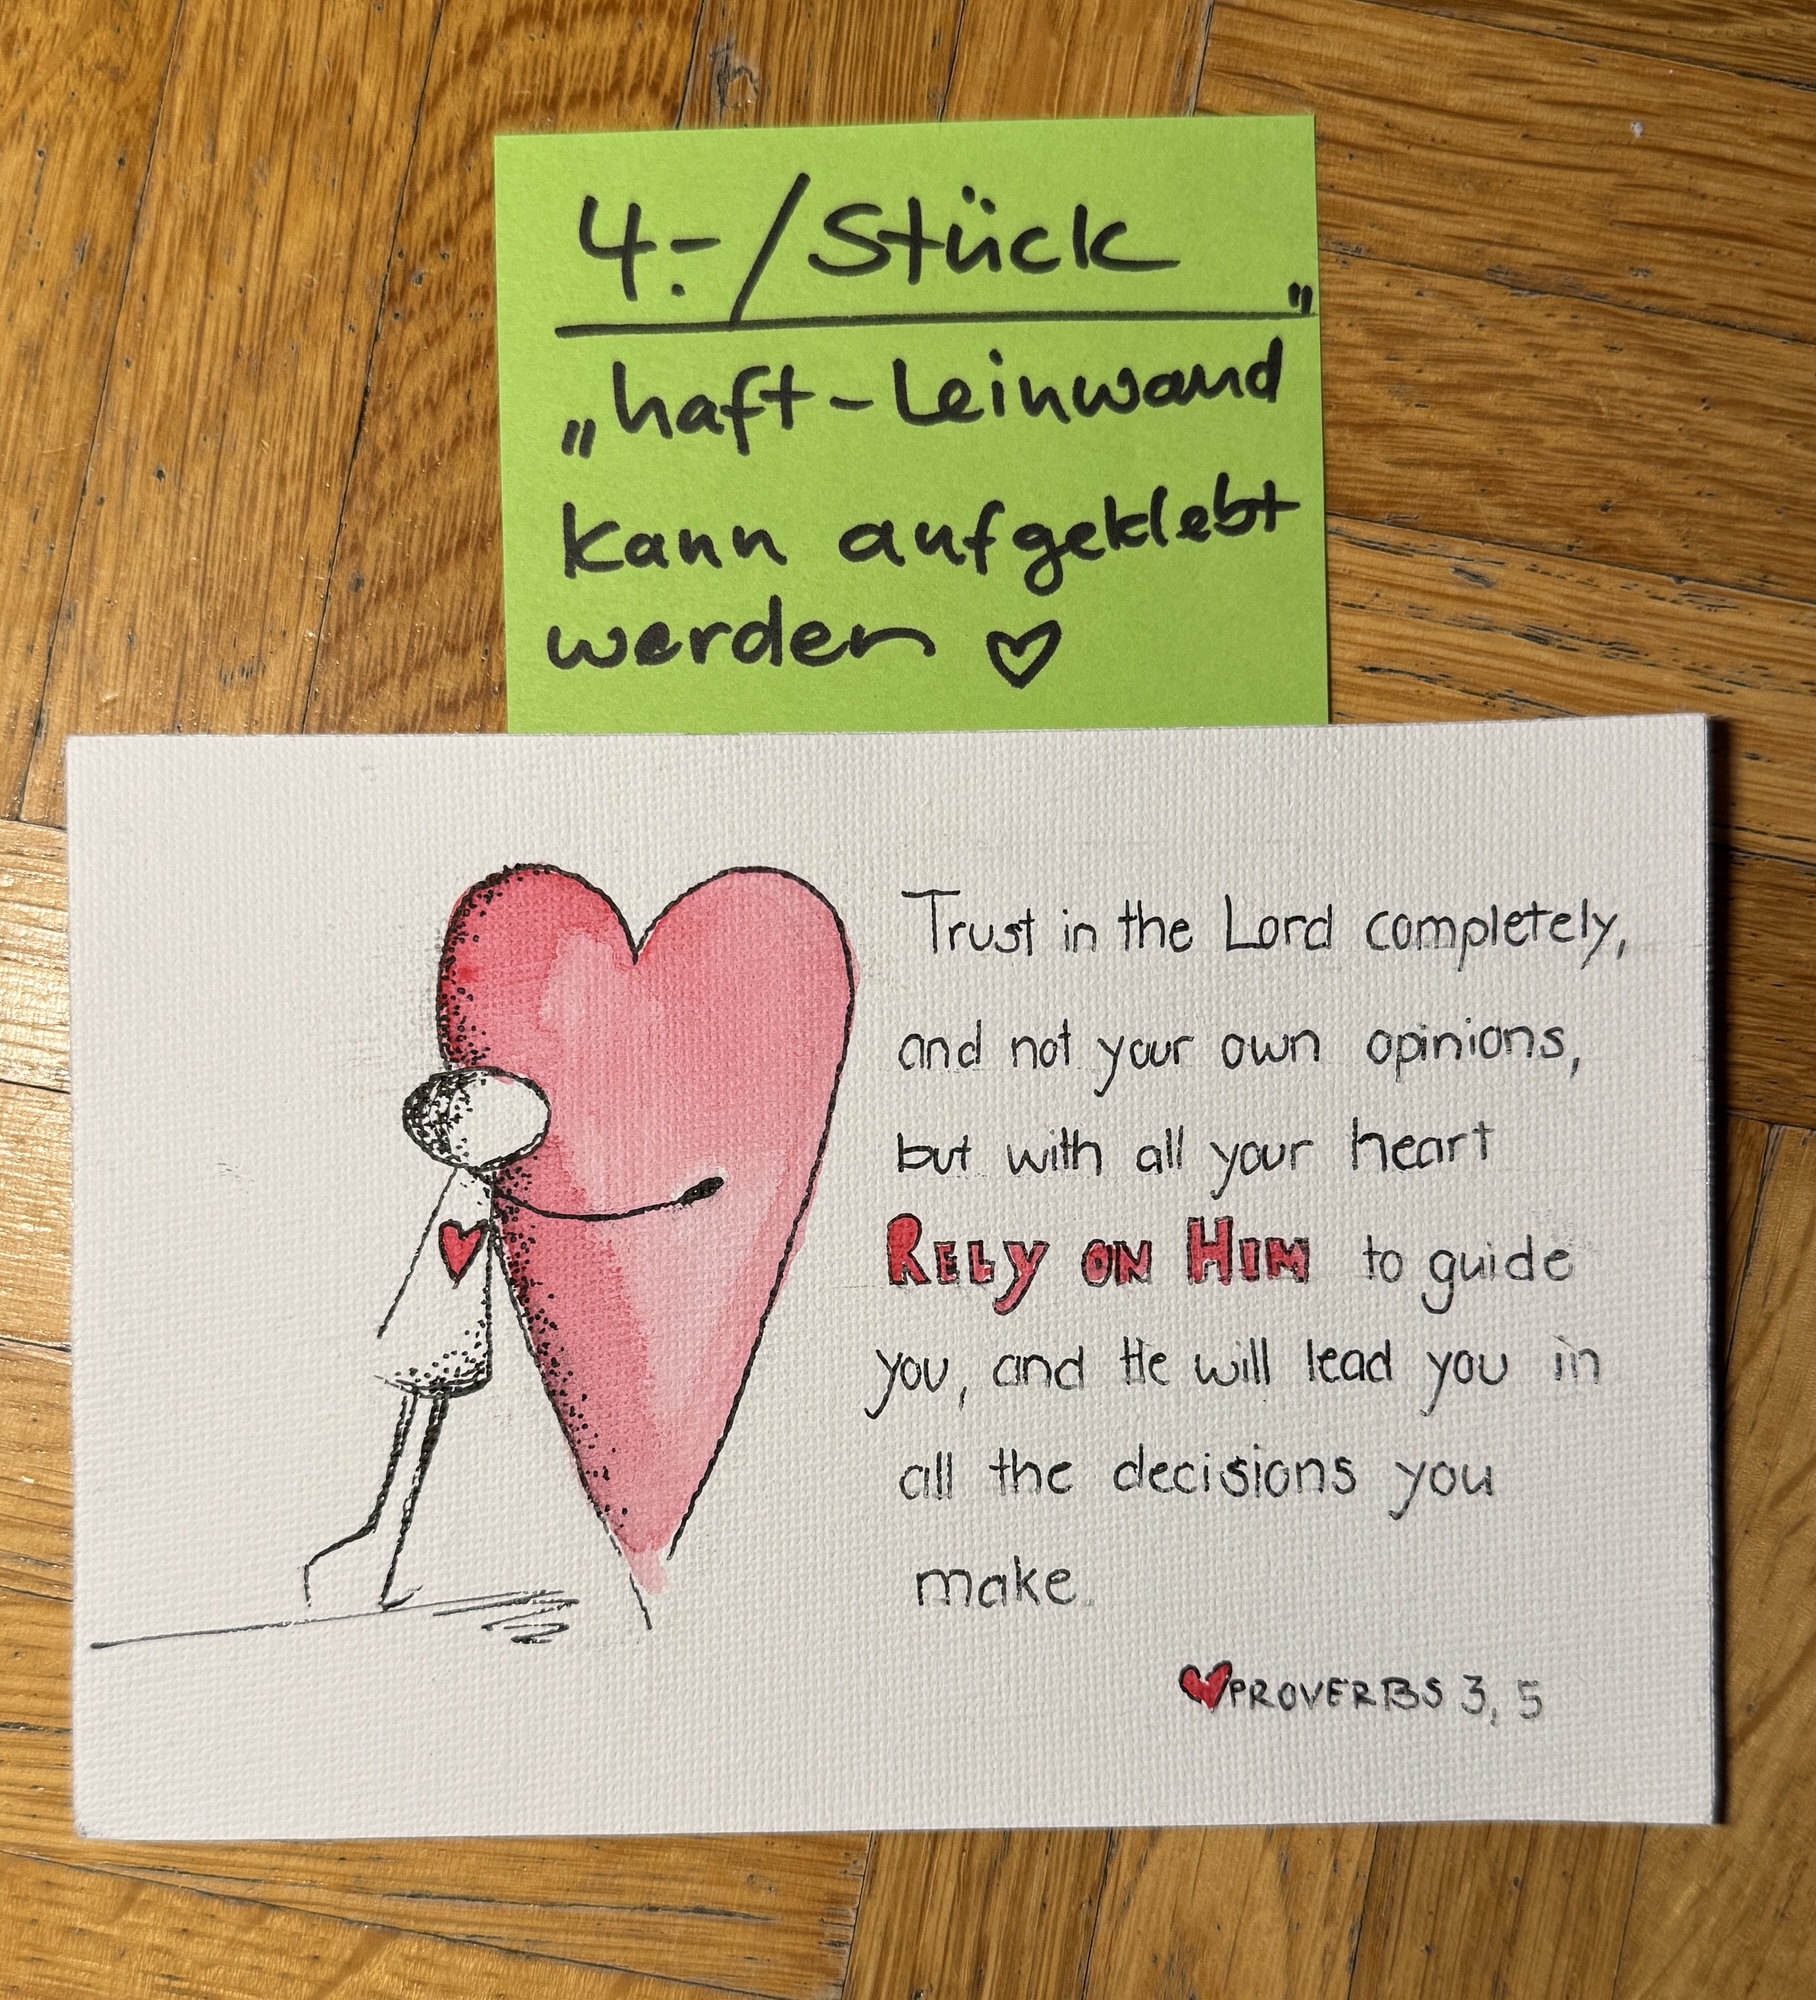 4.-/Stück
„haft-Leinwand"
kann aufgeklebt
werden ♡
Trust in the Lord completely,
and not your own opinions,
but with all your heart
RELY ON HIM to guide
you, and He will lead you in
all the decisions you
make.
♥PROVERBS 3, 5